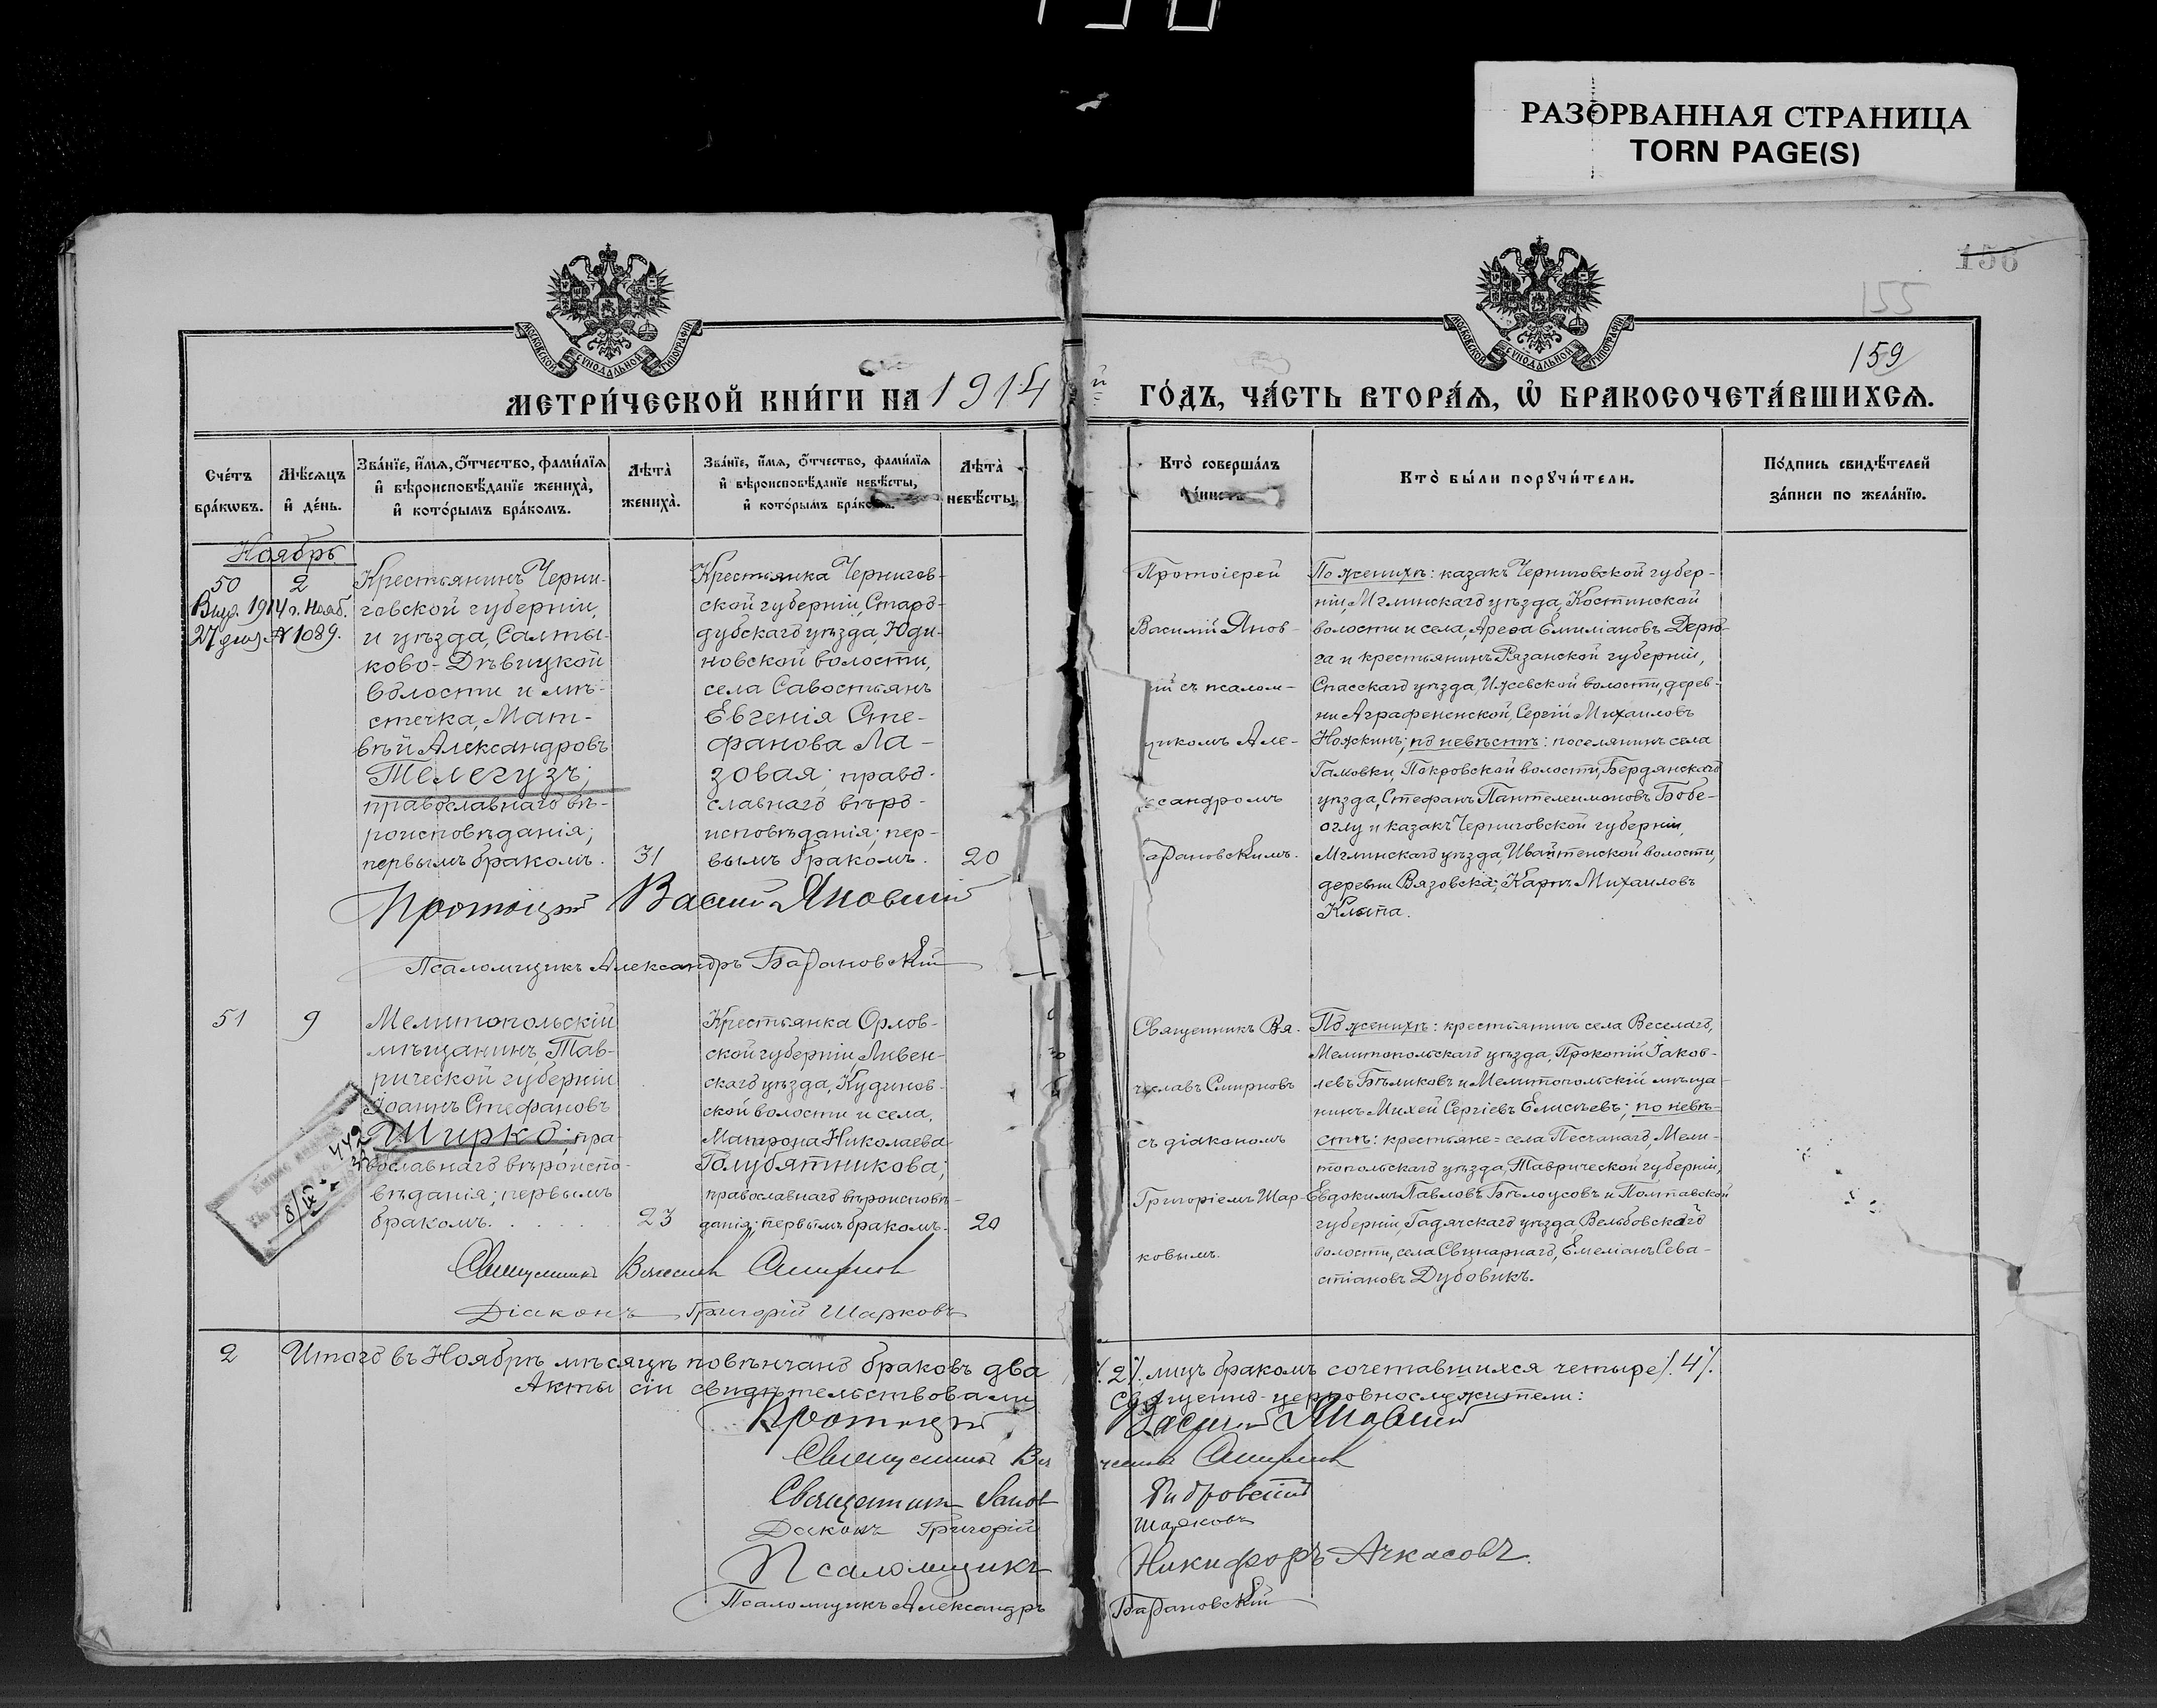 РАЗОРВАННАЯ СТРАНИЦА
TORN PAGE(S)
156
155
159
МОСКОВСКОЙ СѴНОДАЛЬНОЙ ТИПОГРАФІИ
МОСКОВСКОЙ СѴНОДАЛЬНОЙ ТИПОГРАФІИ
МЕТРИ́ЧЕСКОЙ КНИ́ГИ НА 1914
й ГО́ДЪ, ЧА́СТЬ ВТОРА́Ѧ, Ѡ҆ БРАКОСОЧЕТА́ВШИХСѦ.
Счéтъ
брáкѡвъ.
Мѣ́сѧцъ
и҆ дéнь.
Звáнїе, и҆́мѧ, ѻ҆́тчество, фамѝлїѧ
и҆ вѣроисповѣ́данїе женихà,
и҆ котóрымъ брáкомъ.
Лѣтà
женихà.
Звáнїе, и҆́мѧ, ѻ҆́тчество, фамѝлїѧ
и҆ вѣроисповѣ́данїе невѣ́сты,
и҆ котóрымъ брáкомъ.
Лѣтà
невѣ́сты.
Ктò совершáлъ
Ктò бы́ли порꙋчи́тели.
Пóдпись свидѣ́телей
зáписи по желáнїю.
Ноябрь
50
2
Выд. 1914 г. Нояб.
27 дня № 1089.
Крестьянинъ Черни-
говской губерніи,
и уѣзда, Салты-
ково-Дѣвицкой
волости и мѣ-
стечка, Мат-
вѣй Александровъ
Телегузъ;
православнаго вѣ-
роисповѣданія;
первымъ бракомъ.
31
Крестьянка Чернигов-
ской губерніи, Старо-
дубскаго уѣзда, Юди-
новской волости,
села Савостьянъ
Евгенія Сте-
фанова Ла-
зовая; право-
славнаго вѣро-
исповѣданія; пер-
вымъ бракомъ.
20
Протоіерей
Василій Янов-
ій съ псалом-
щикомъ Але-
ксандромъ
арановскимъ.
По женихѣ: казакъ Черниговской губер-
ніи, Мглинскаго уѣзда, Костинской
волости и села, Арефа Емиліановъ Дерю-
га и крестьянинъ Рязанской губерніи,
Спасскаго уѣзда, Ижевской волости, дерев-
ни Аграфененской, Сергій Михаиловъ
Ножкинъ; по невѣстѣ: поселянинъ села
Гамовки, Покровской волости, Бердянскаго
уѣзда, Стефанъ Пантелеимоновъ Бобе-
оглу и казакъ Черниговской губерніи,
Мглинскаго уѣзда, Ивайтенской волости,
деревни Вязовска; Карпъ Михаиловъ
Протоіерей Василій Яновскій
Псаломщикъ Александръ Барановскій
51
9
Мелитопольскій
мѣщанинъ, Тав-
рической губерніи
Іоаннъ Стефановъ
Ширко; пра-
вославнаго вѣроиспо-
вѣданія; первымъ
бракомъ.
23
Крестьянка Орлов-
ской губерніи Ливен-
скаго уѣзда, Кудинов-
ской волости и села,
Матрона Николаева
Голубятникова;
православнаго вѣроисповѣ-
данія; первымъ бракомъ.
20
Священникъ Вя-
чеславъ Смирновъ
съ діакономъ
Григоріемъ Шар-
ковымъ.
По женихѣ: крестьянинъ села Веселаго,
Мелитопольскаго уѣзда, Прокопій Іаков-
левъ Бѣликовъ и Мелитопольскій мѣща-
нинъ Михей Сергіевъ Елисѣевъ; по невѣ-
стѣ: крестьяне= села Песчанаго, Мели-
топольскаго уѣзда, Таврической губерніи,
Евдокимъ Павловъ Бѣлоусовъ и Полтавской
губерніи, Гадячскаго уѣзда, Вельбовскаго
волости, села Свинарнаго, Емеліанъ Сева-
стіановъ Дубовикъ.
Священникъ Вячеславъ Смирновъ
Діаконъ Григорій Шарковъ
2
Итого въ Ноябрѣ мѣсяцѣ повѣнчано браковъ два /.2/. лицъ бракомъ сочетавшихся четыре /.4/.
Акты сіи свидѣтельствовали Священно-церковнослужители:
Протоіерей Василій Яновскій
Священникъ Вячеславъ Смирновъ
Священникъ
Діаконъ Григорій Шарковъ
Псаломщикъ Никифоръ Ачкасовъ.
Псаломщикъ Александръ Барановскій